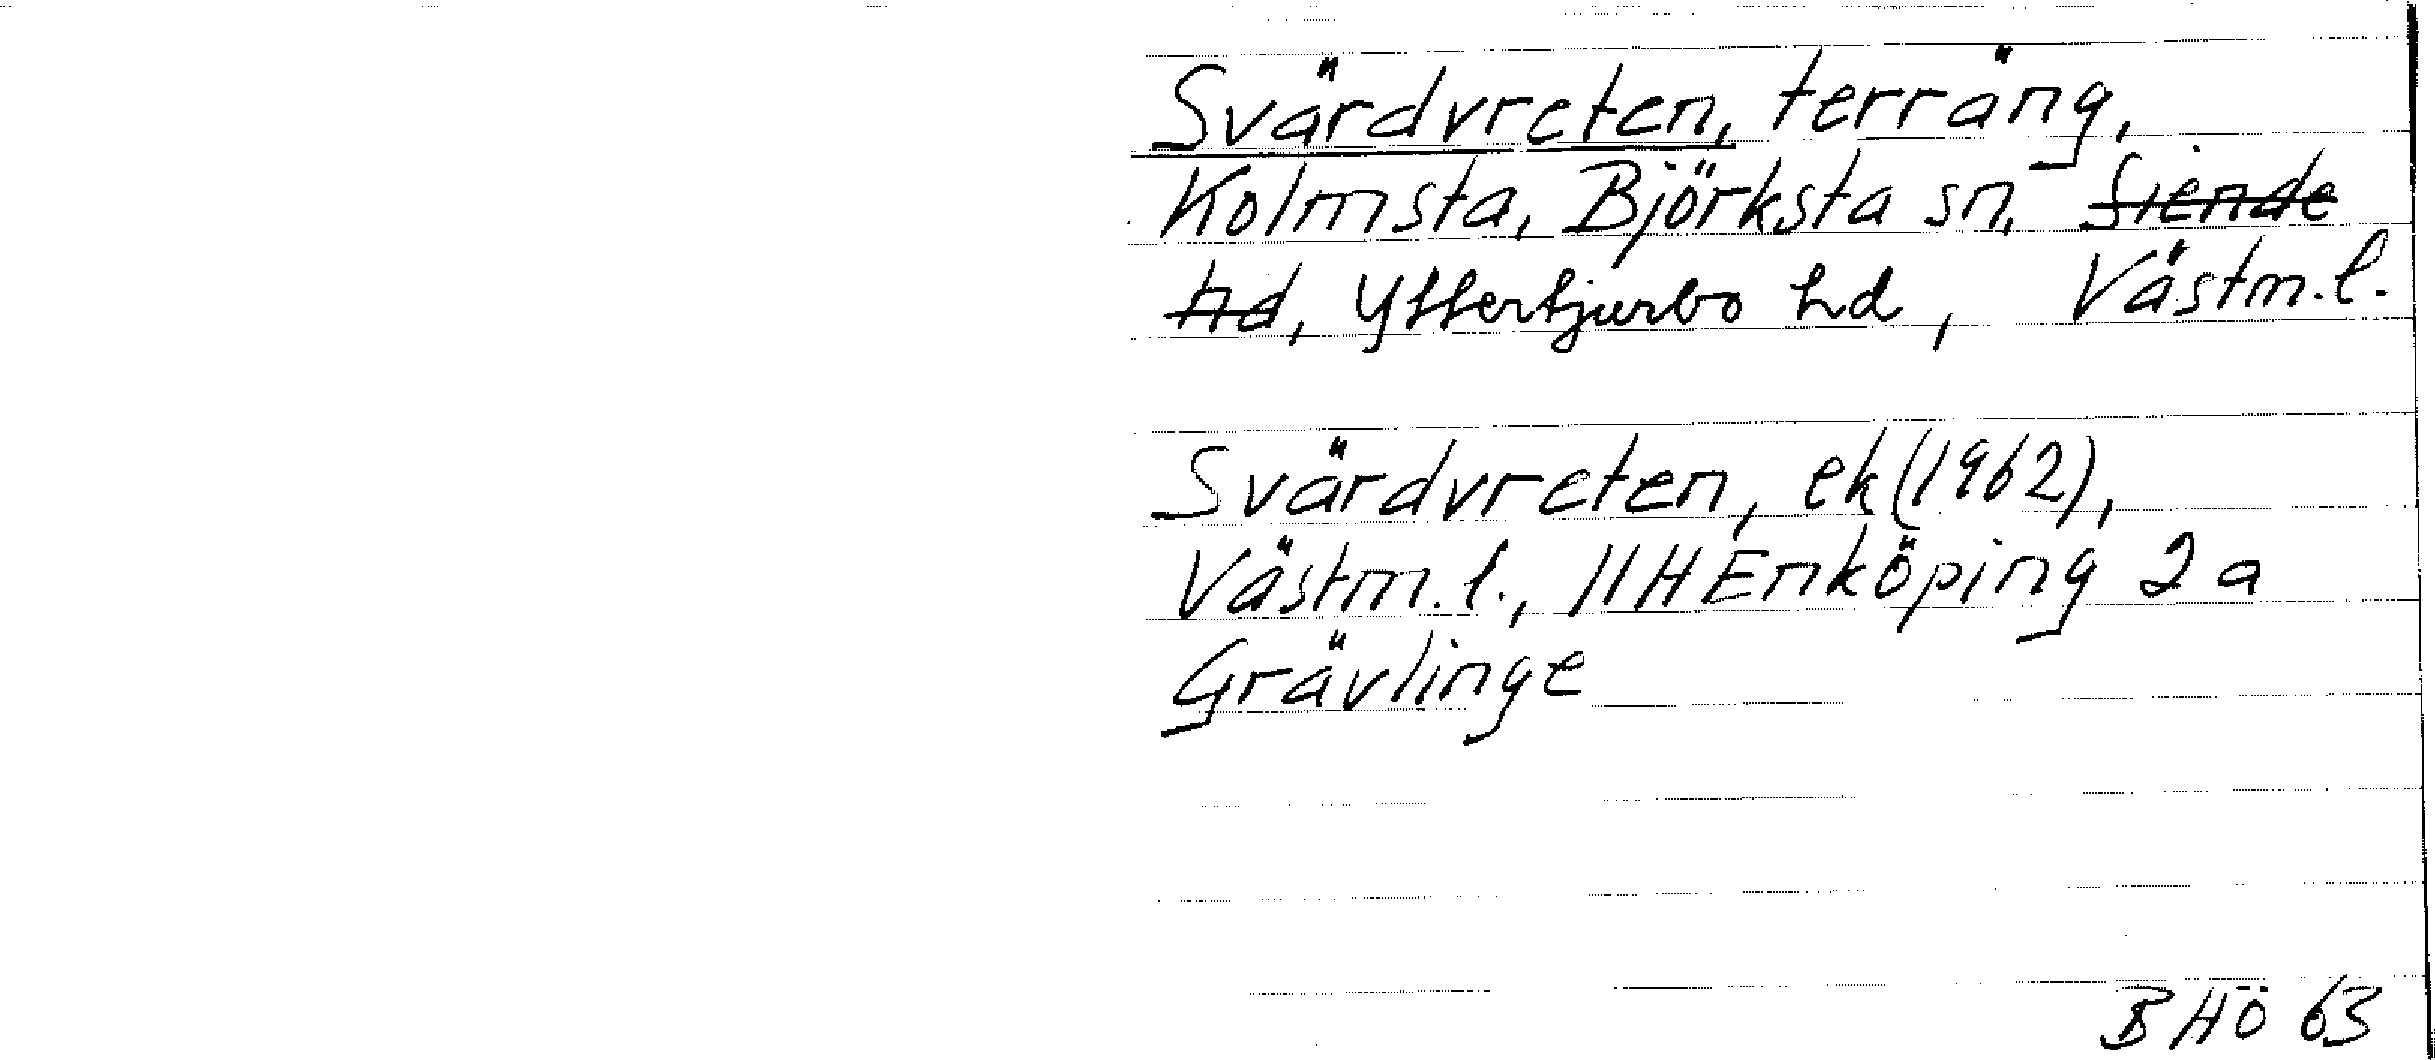 Svärdvreten, terräng,
Kolmsta, Björksta sn, Siende
hd, Yttertjurbo hd, Västm.l.
Svärdvreten, ek (1962),
Västm.l., 11H Enköping 2a
Grävlinge
BHÖ 63